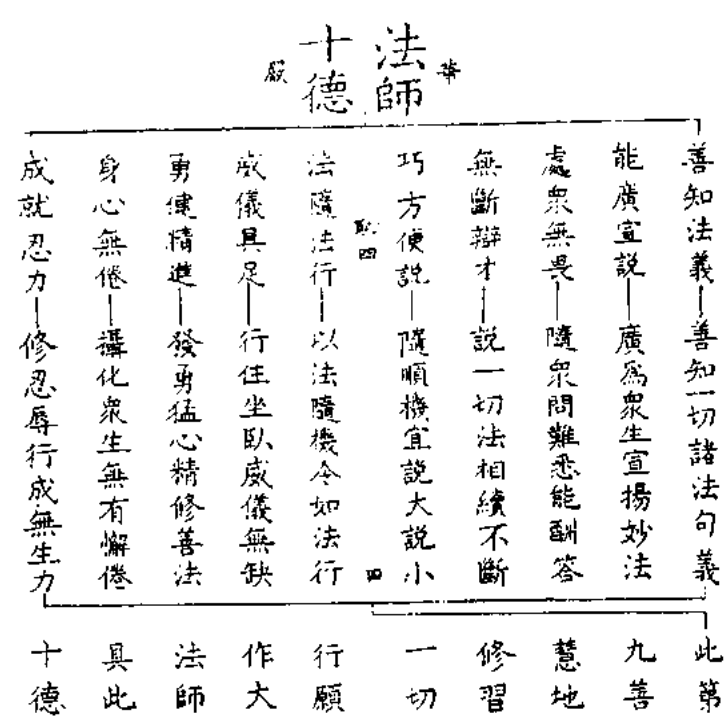 法師
十德
華
嚴
善知法義—善知一切諸法句義
能廣宣說—廣為眾生宣揚妙法
處眾無畏—隨眾問難悉能酬答
無斷辯才—說一切法相續不斷
巧方便說—隨順機宜說大說小
法隨法行—以法隨機令如法行
威儀具足—行住坐臥威儀無缺
勇健精進—發勇猛心精修善法
身心無倦—攝化眾生無有懈倦
成就忍力—修忍辱行成無生力
此第
九善
慧地
修習
一切
行願
作大
法師
具此
十德